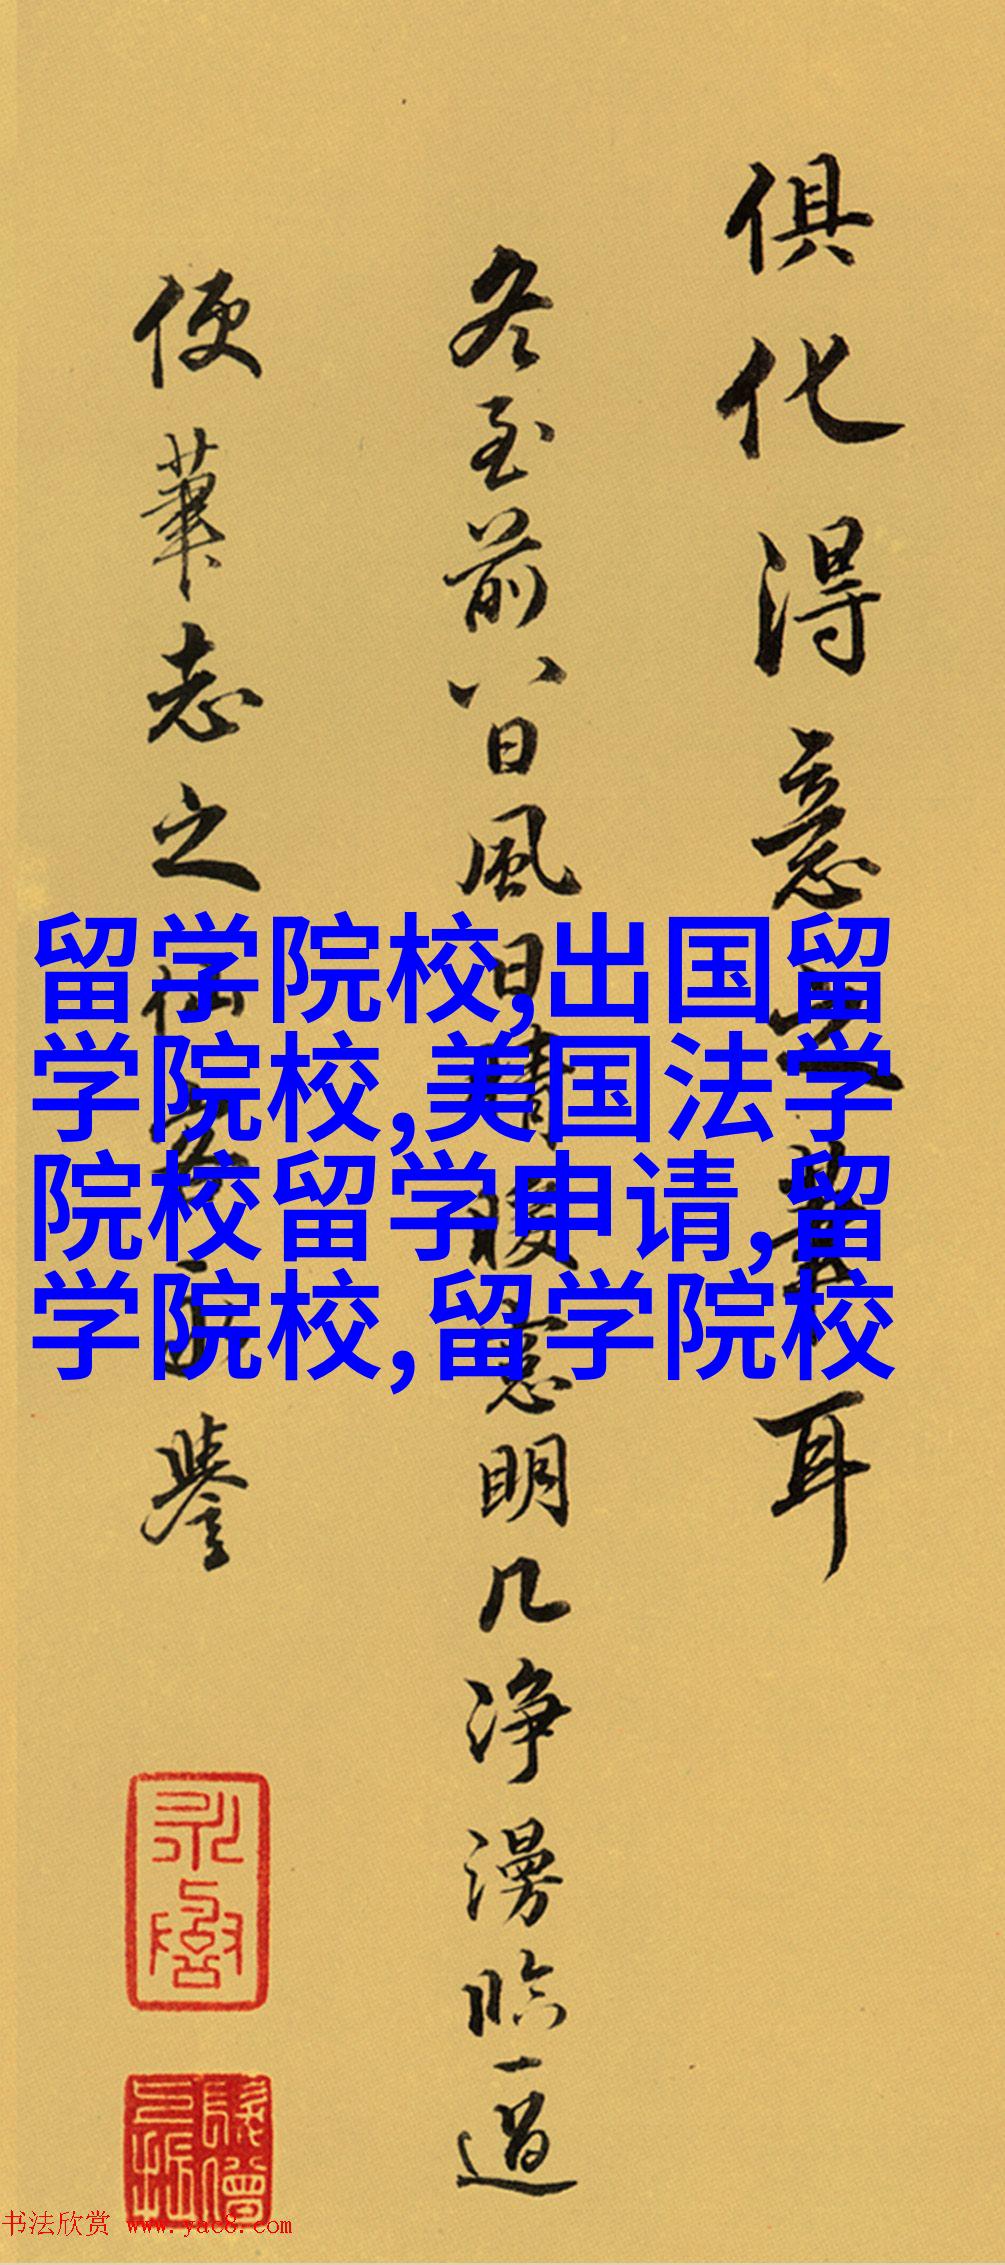 俱化得意之書耳
冬至前八日風日晴暖窓明几淨漫臨一過
便筆志之
譽
留学院校,出国留
学院校,美国法学
院校留学申请,留
学院校,留学院校
书法欣赏 www.yac8.com